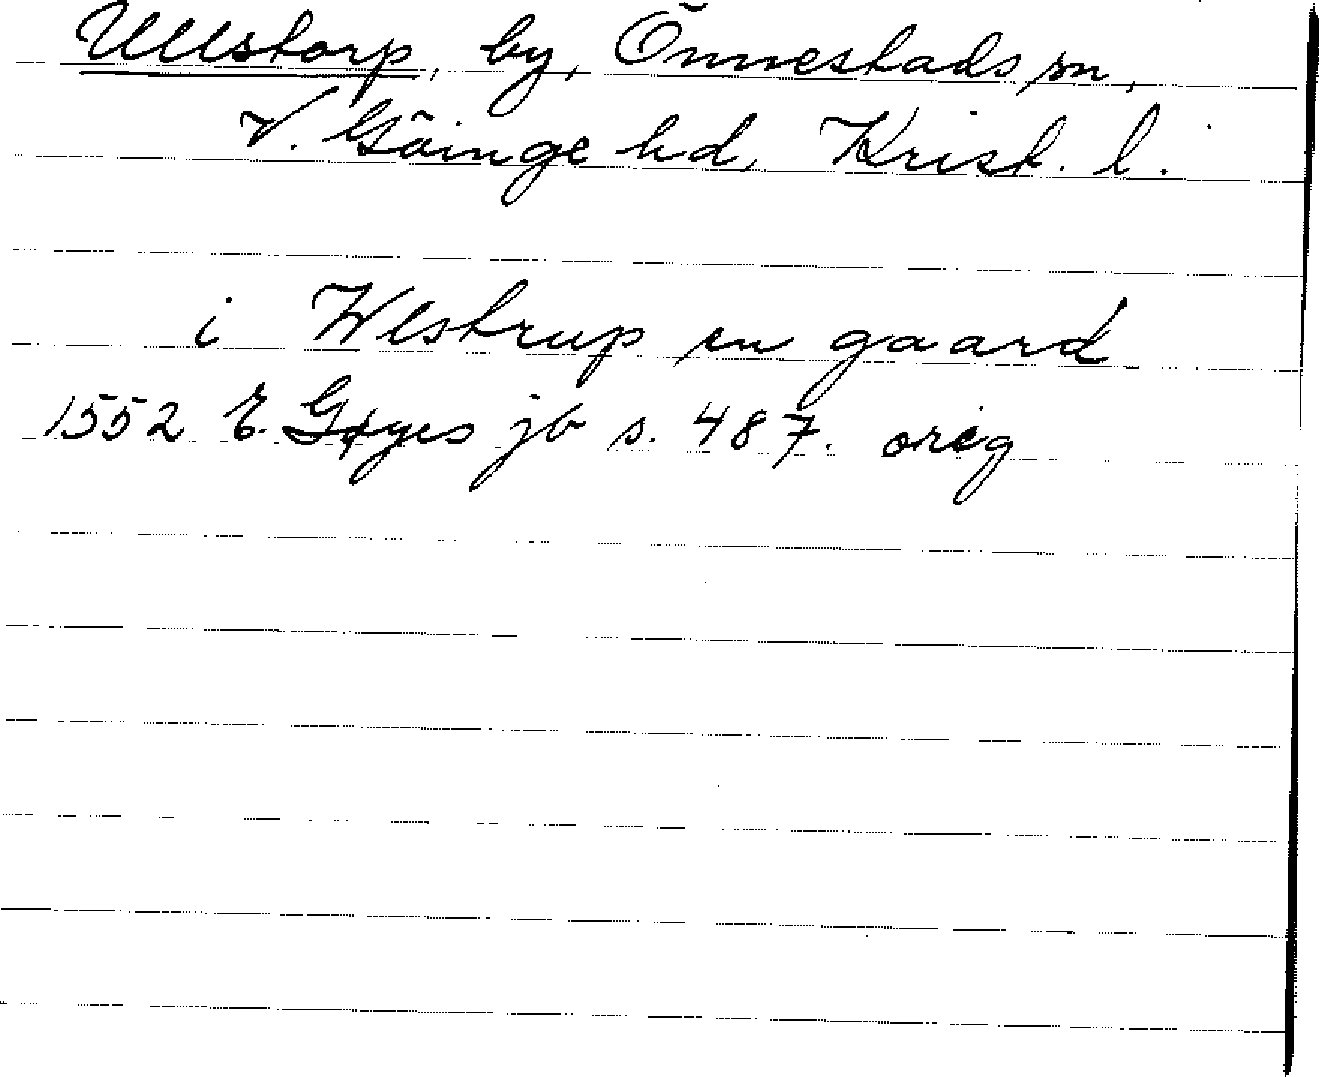 Ullstorp, by, Önnestads sn,
V. Göinge hd, Krist. l.
i Wlstrup en gaard
1552 E. Gøyes jb s. 487. orig